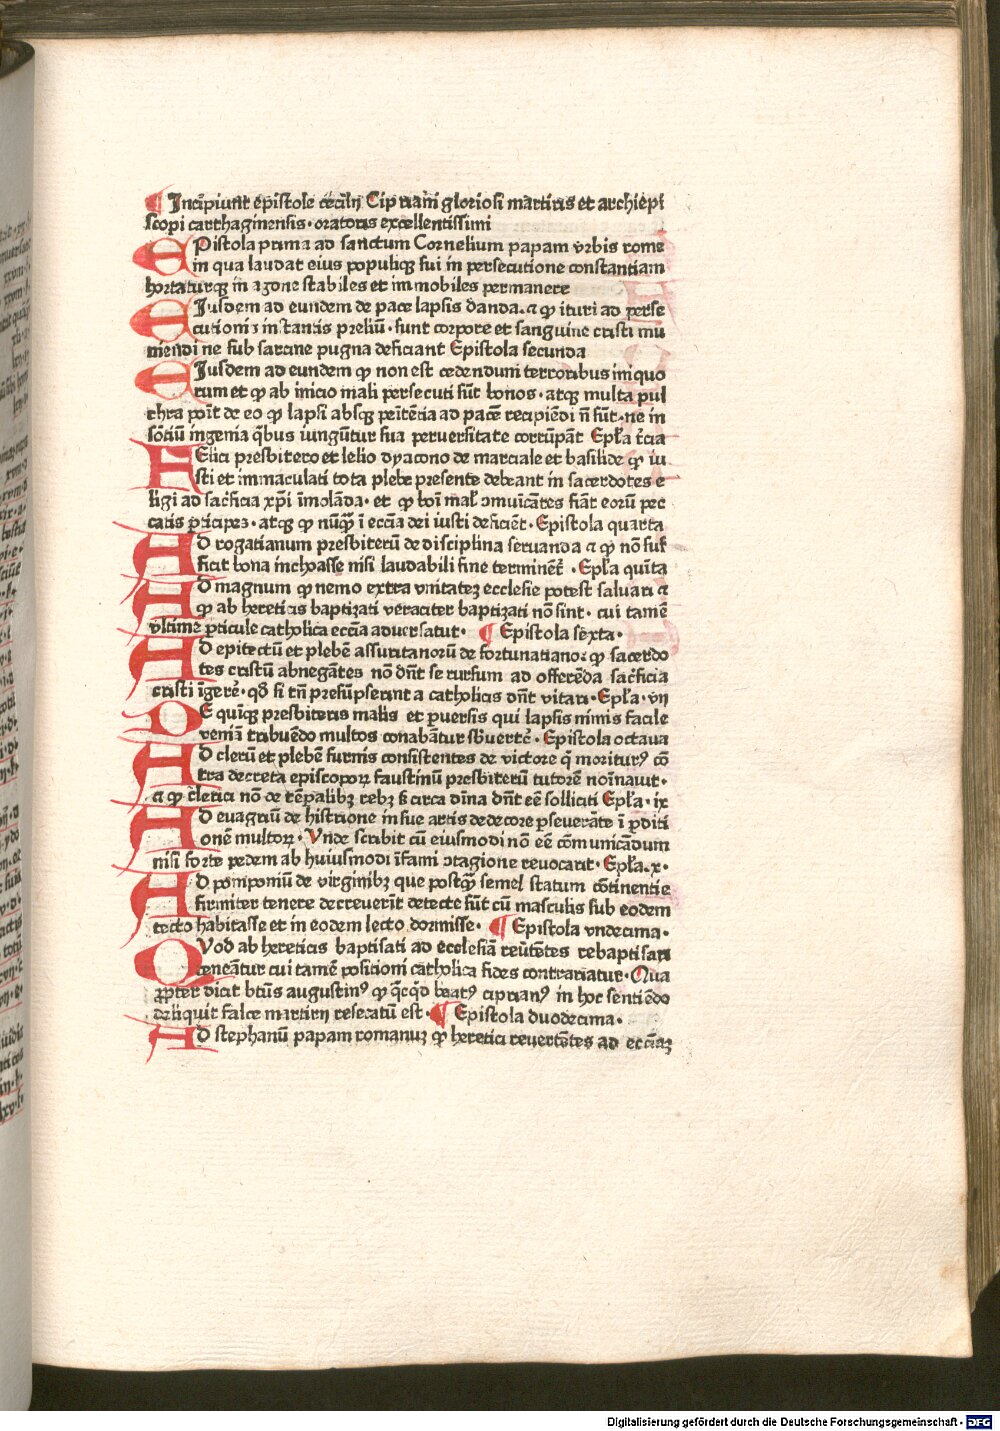 ¶ Incipiunt epistole cecilij Cipriani gloriosi martiris et archiepi
scopi carthaginensis · oratoris excellentissimi
EPistola prima ad sanctum Cornelium papam vrbis rome
in qua laudat eius populiqꝫ sui in persecutione constantiam
hortaturqꝫ in agone stabiles et immobiles permanere
EIusdem ad eundem de pace lapsis danda. a ꝙ ituri ad perse
cutionis instantis preliū · sunt corpore et sanguine cristi mu
niendi ne sub sarcine pugna deficiant Epistola secunda
EIusdem ad eundem ꝙ non est cedendum terroribus iniquo
rum et ꝙ ab inicio mali persecuti sūt bonos · atqꝫ multa pul
chra poīt de eo ꝙ lapsi absqꝫ peītētia ad pacē recapiēdi n̄ sūt · ne in
sōtiū ingenia q̄bus iungūtur sua peruersitate corrūpāt Epl̄a t̄cia
FElici presbitero et lelio dyacono de marciale et basilide ꝙ iu
sti et immaculati tota plebe presente debeant in sacerdotes e
ligi ad sac̄ficia xp̄i īmolāda · et ꝙ boī mal̄ ɔmuīcātes fiāt eorū pec
catis pticipeꝫ · atqꝫ ꝙ nūꝙ̄ ī eccīa dei iusti deficiēt · Epistola quarta
AD rogatianum presbiterū de disciplina seruanda a ꝙ nō suf
ficit bona inchoasse nisi laudabili fine terminet̄ · Epl̄a quīta
AD magnum ꝙ nemo extra vnitateꝫ ecclesie potest saluari a
ꝙ ab hereticis baptizati veraciter baptizati nō sint · cui tamē
vltime pticule catholica eccīa aduersatut · ¶ Epistola sexta ·
AD epitectū et plebē assuritanorū de fortunatiano : ꝙ sacerdo
tes cristū abnegātes nō dn̄t se rursum ad offerēda sac̄ficia
cristi īgerē · qd̄ si tn̄ presūpserint a catholicis dn̄t vitari · Epl̄a · vij
DE quīqꝫ presbiteris malis et puersis qui lapsis nimis facile
veniā tribuēdo multos conabātur sb̄uertē · Epistola octaua
AD clerū et plebē furnis consistentes de victore q̄ moriturꝯ cō
tra decreta episcopoꝝ faustinū presbiterū tutorē noīnauit ·
a ꝙ clerici nō de tēpalibꝫ rebꝫ s̄ circa dīna dn̄t eē solliciti Epl̄a · ix
AD euagriū de histrione in sue artis dedecore pseuerāte ī pditi
onē multoꝝ · Vnde scribit cū eiusmodi nō eē cōmunicādum
nisi forte pedem ab huiusmodi īfami ɔtagione reuocarit · Epl̄a · x ·
AD pomponiū de virginibꝫ que postꝙ̄ semel statum cōtinentie
firmiter tenere decreuerīt detecte sūt cū masculis sub eodem
tecto habitasse et in eodem lecto dormisse · ¶ Epistola vndecima ·
QVod ab hereticis baptisati ad ecclesiā reūtētes rebaptisari
teneātur cui tamē positioni catholica fides contrariatur · Qua
ꝓpter dicit btūs augustinꝯ ꝙ qcq̄d beatꝯ ciprianꝯ in hoc sentiēdo
deliquit falce martirij resecatū est · ¶ Epistola duodecima ·
AD stephanū papam romanuꝫ ꝙ heretici reuertētes ad eccīaꝫ
Digitalisierung gefördert durch die Deutsche Forschungsgemeinschaft - DFG